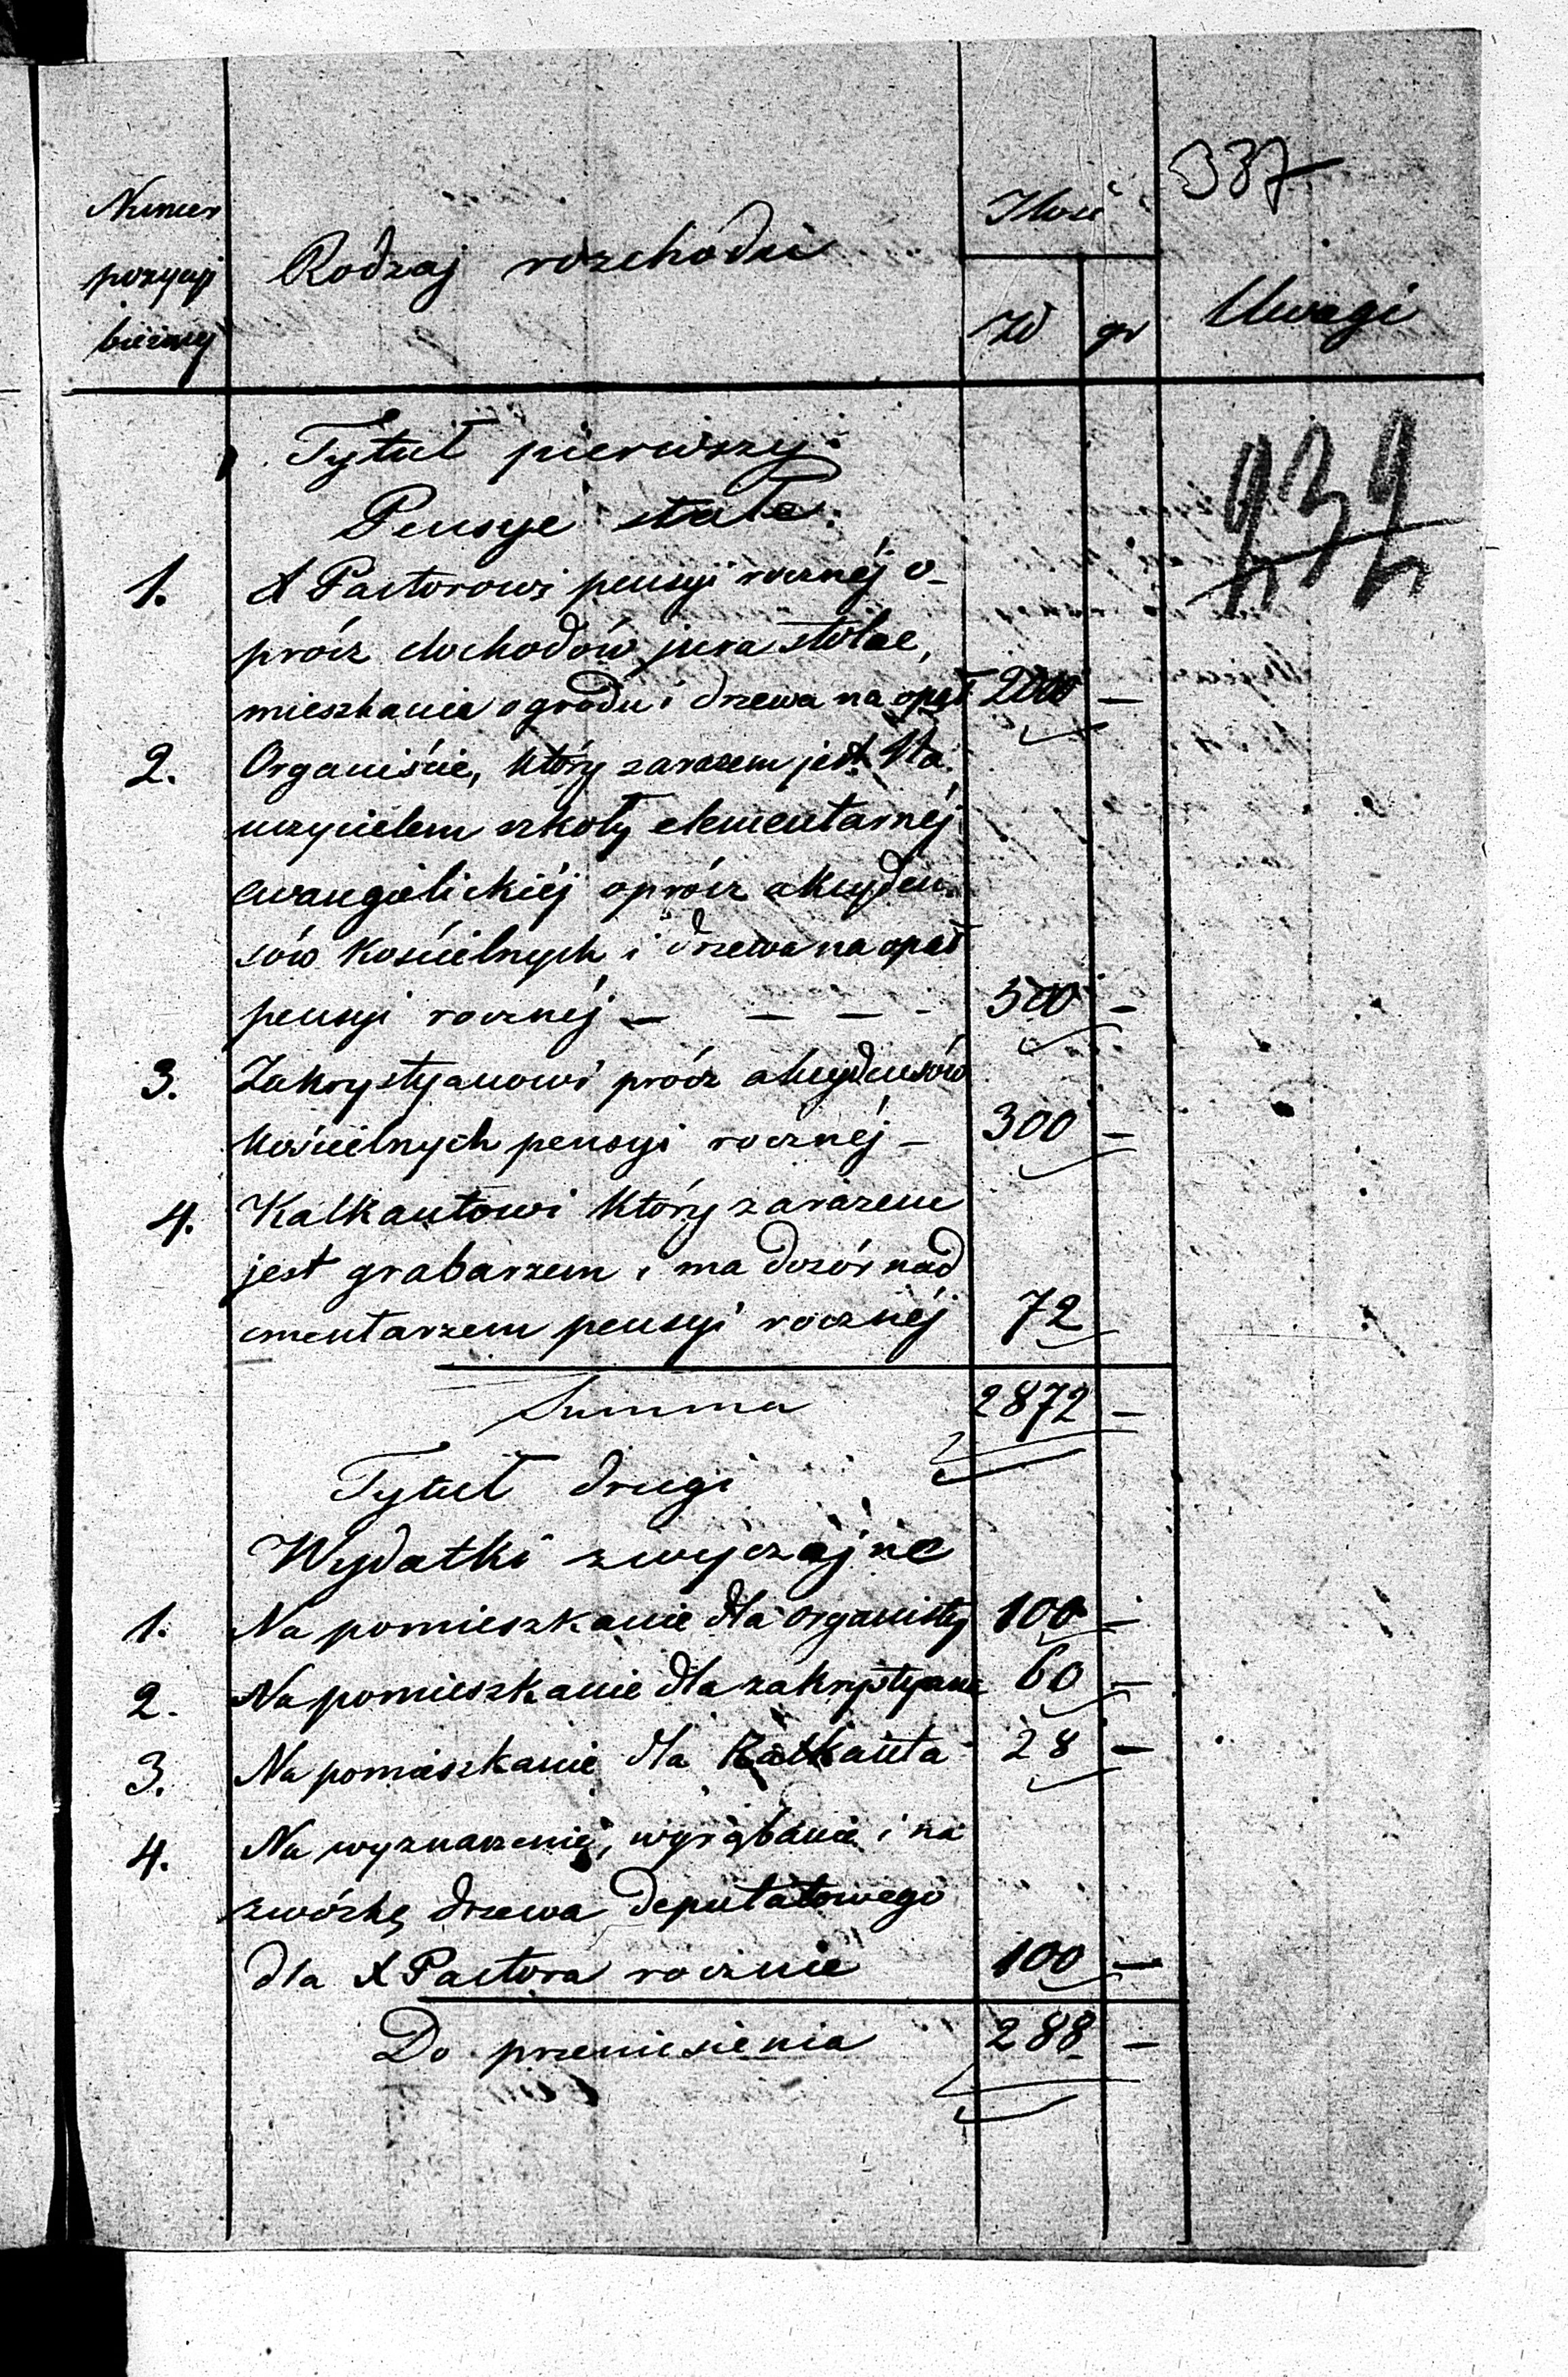 337
Numer
pozycyi
bieżącej
Rodzaj rozchodu
Ilość
Zł
gr
Uwagi
Tytuł pierwszy.
Pensye stałe.
1. X Pastorowi pensyi rocznéj o-
prócz dochodów jura stolae,
mieszkania ogrodu i drzewa na opał 2000 —
2. Organiście, który zarazem jest Na
uczycielem szkoły elementarnéj
ewangielickiéj oprócz akcyden-
sów kościelnych i drzewa na opał
pensyi rocznéj — — — - 500 —
3. Zakrystyanowi prócz akcydensów
kościelnych pensyi rocznéj — 300 —
4. Kalkantowi który zarazem
jest grabarzem i ma dozór nad
cmentarzem pensyi rocznéj 72
Summa 2872 —
Tytuł drugi
Wydatki zwyczajne
1. Na pomieszkanie dla organisty 100 —
2. Na pomieszkanie dla zakrystyana 60 —
3. Na pomieszkanie dla Kalkanta 28 —
4. Na wyznaczenie, wyrąbanie i na
zwózkę drzewa deputatowego
dla X Pastora rocznie 100 —
Do przeniesienia 288 —